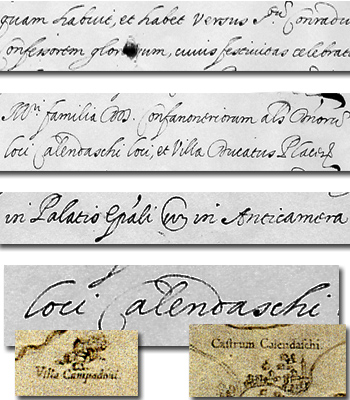 quam habuit, et habet versus S.tum Conradu
Confessorem glor um, cuius festivitas celebrat
familia DD. Confanoneriorum als
loci Calendaschi loci, et Villa Ducatus Placen
in Palatio Ep̄ali in Anticamera
loci Calendaschi
Villa Campadoni
Castrum Calendaschi